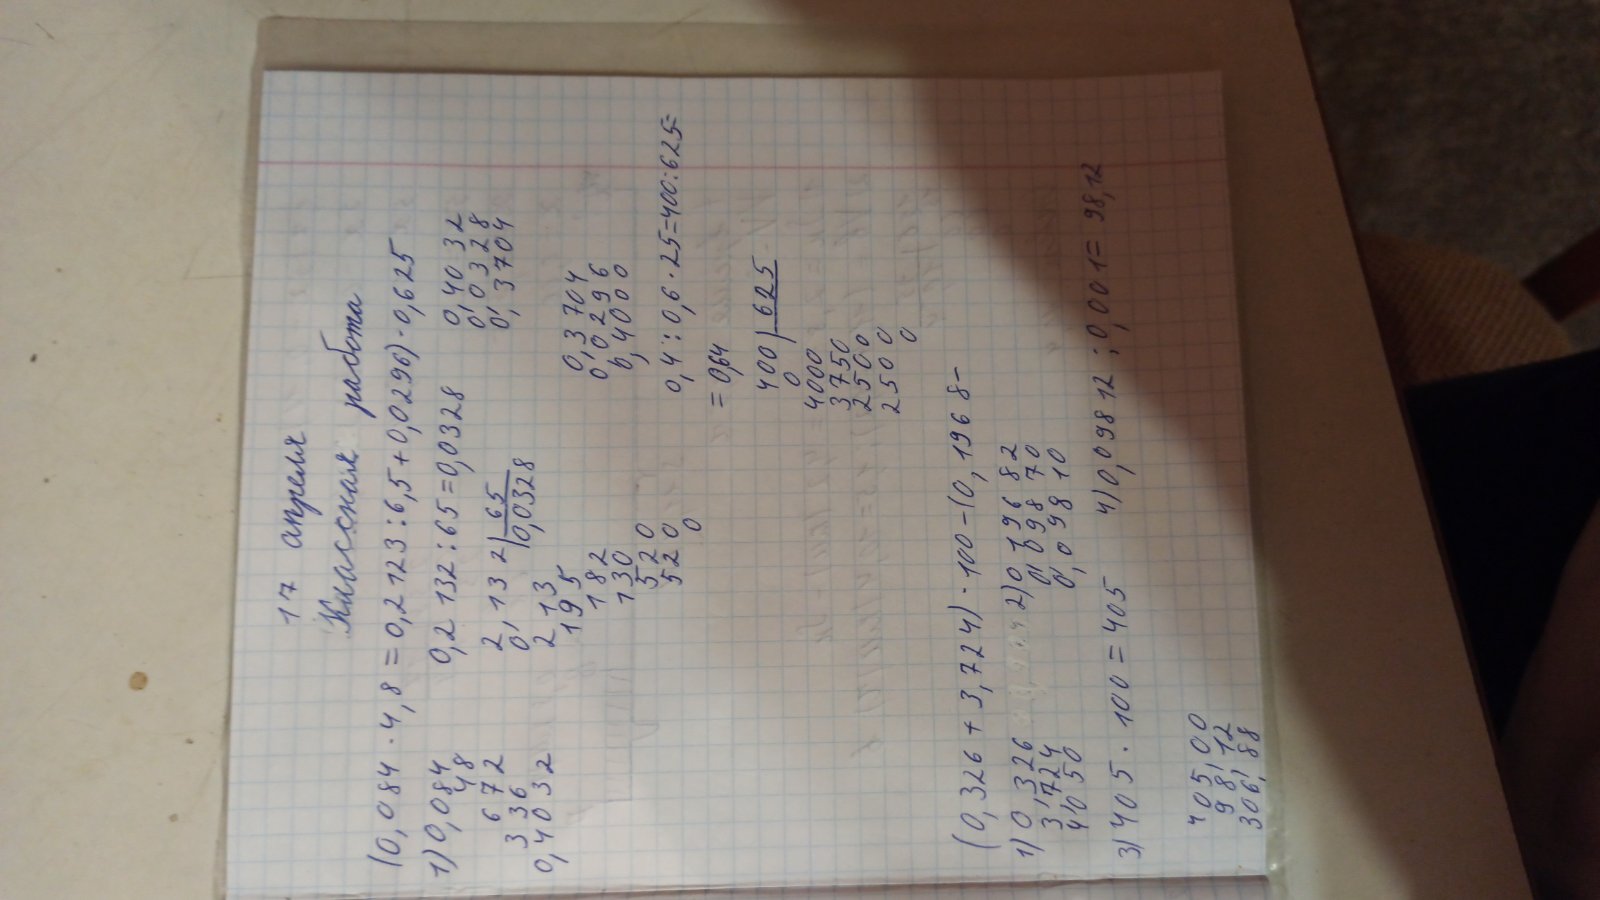 17 апреля
Классная работа
(0,084·4,8=0,2123:6,5+0,0296)·0,625
1)0,084
48
672
336
0,4032
0,2132:65=0,0328
2,132|65
0,
0,0328
213
195
182
130
520
520
0
0,4032
0,0328
0,3704
0,3704
0,0296
0,4000
0,4:0,6·25=400:625=
=0,64
400|625
0
4000
3750
2500
2500
0
(0,326+3,724)·100-(0,1968-
1)0,326
3,724
4050
2)0,19682
0,09870
0,09810
3)405·100=405
4)0,09812:0,001=98,12
405,00
98,12
306,88